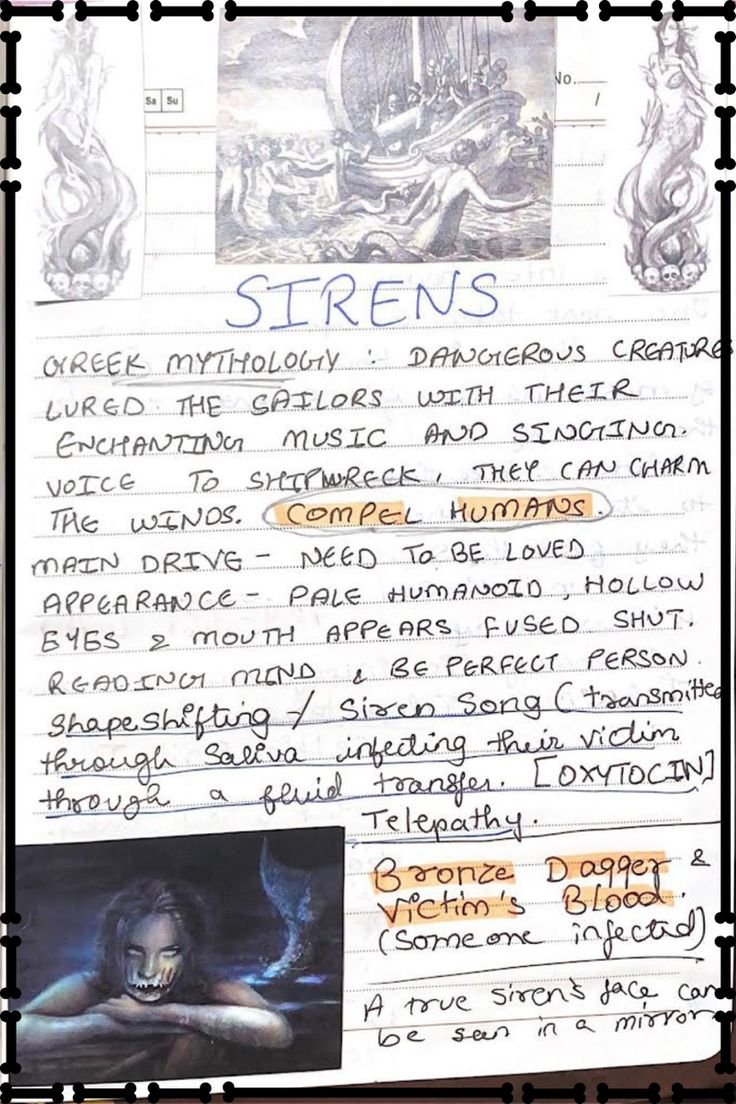 Sa Su
No.
/
SIRENS
GREEK MYTHOLOGY : DANGEROUS CREATURES
LURED THE SAILORS WITH THEIR
ENCHANTING MUSIC AND SINGING.
VOICE TO SHIPWRECK, THEY CAN CHARM
THE WINDS. COMPEL HUMANS.
MAIN DRIVE - NEED TO BE LOVED
APPEARANCE - PALE HUMANOID, HOLLOW
EYES & MOUTH APPEARS FUSED SHUT.
READING MIND & BE PERFECT PERSON.
Shapeshifting / Siren Song (transmitted
through Saliva infecting their victim
through a fluid transfer. [OXYTOCIN]
Telepathy.
Bronze Dagger &
Victim's Blood.
(Someone infected)
A true siren's face can
be seen in a mirror